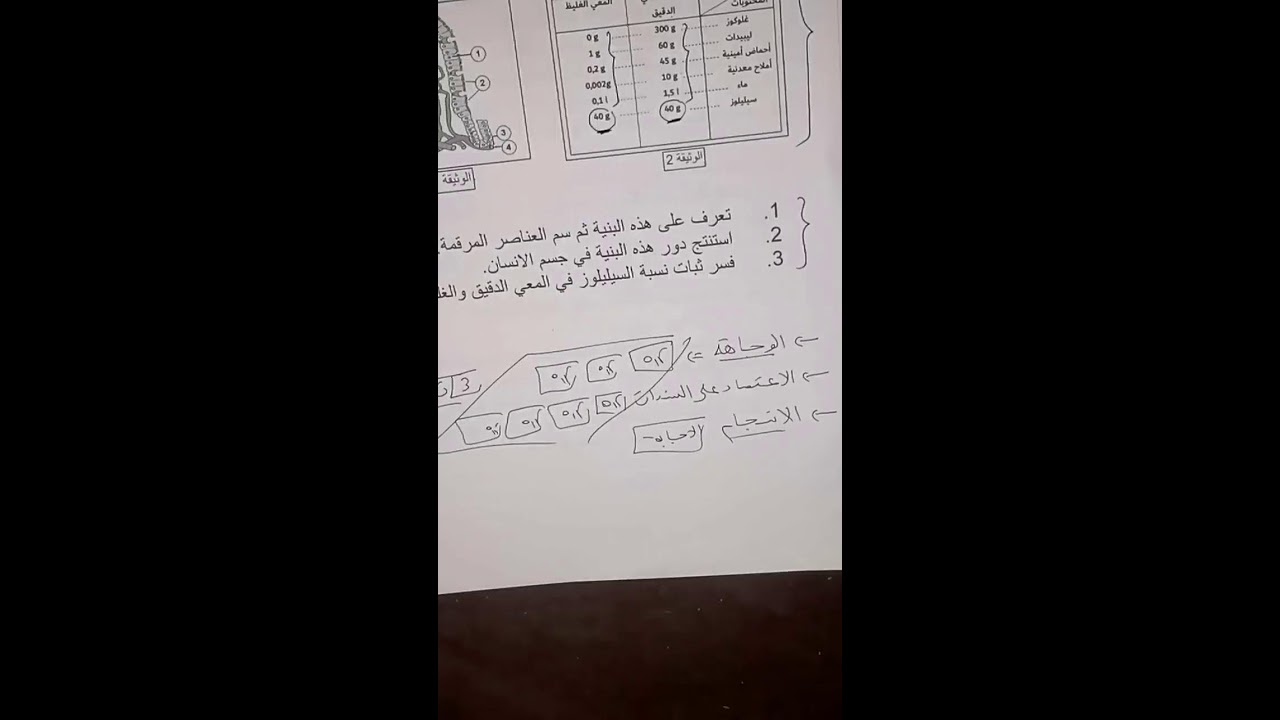 المحتويات الدقيق المعي الغليظ
غلوكوز 300 g 0 g
ليبيدات 60 g 1 g
أحماض أمينية 45 g 0,2 g
أملاح معدنية 10 g 0,002g
ماء 1,5 l 0,1 l
سيليلوز 40 g 40 g
الوثيقة 2
1
2
3
4
الوثيقة
1. تعرف على هذه البنية ثم سم العناصر المرقمة
2. استنتج دور هذه البنية في جسم الانسان.
3. فسر ثبات نسبة السيليلوز في المعي الدقيق
← الوجاهة
← الاعتماد على السندات
← الانسجام
الاجابة
3